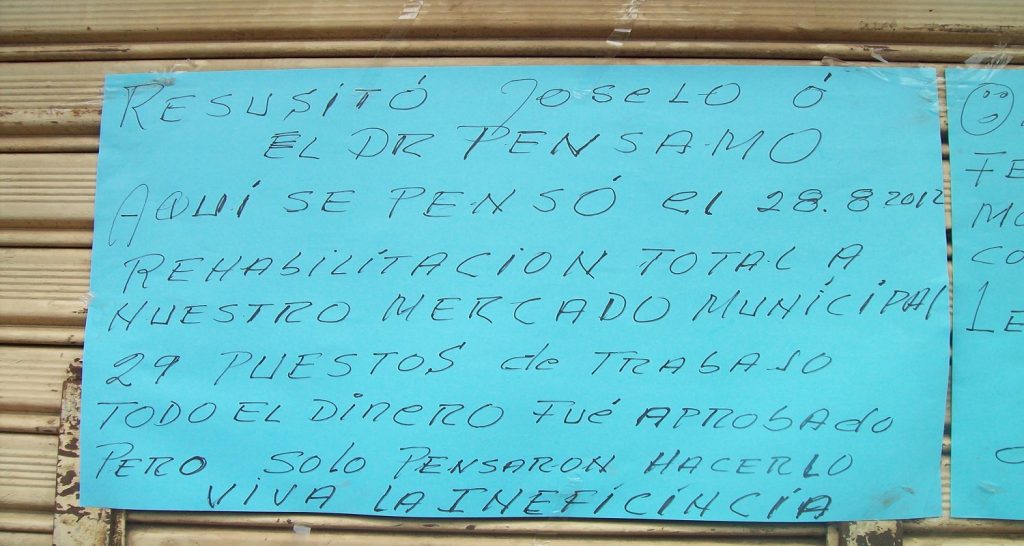 RESUSITÓ JOSELO Ó
EL DR PENSAMO
AQUÍ SE PENSÓ el 28.8 2012
REHABILITACION TOTAL A
NUESTRO MERCADO MUNICIPAL
29 PUESTOS de TRABAJO
TODO EL DINERO FUÉ APROBADO
PERO SOLO PENSARON HACERLO
VIVA LA INEFICINCIA
FE
MO
CO
1 E